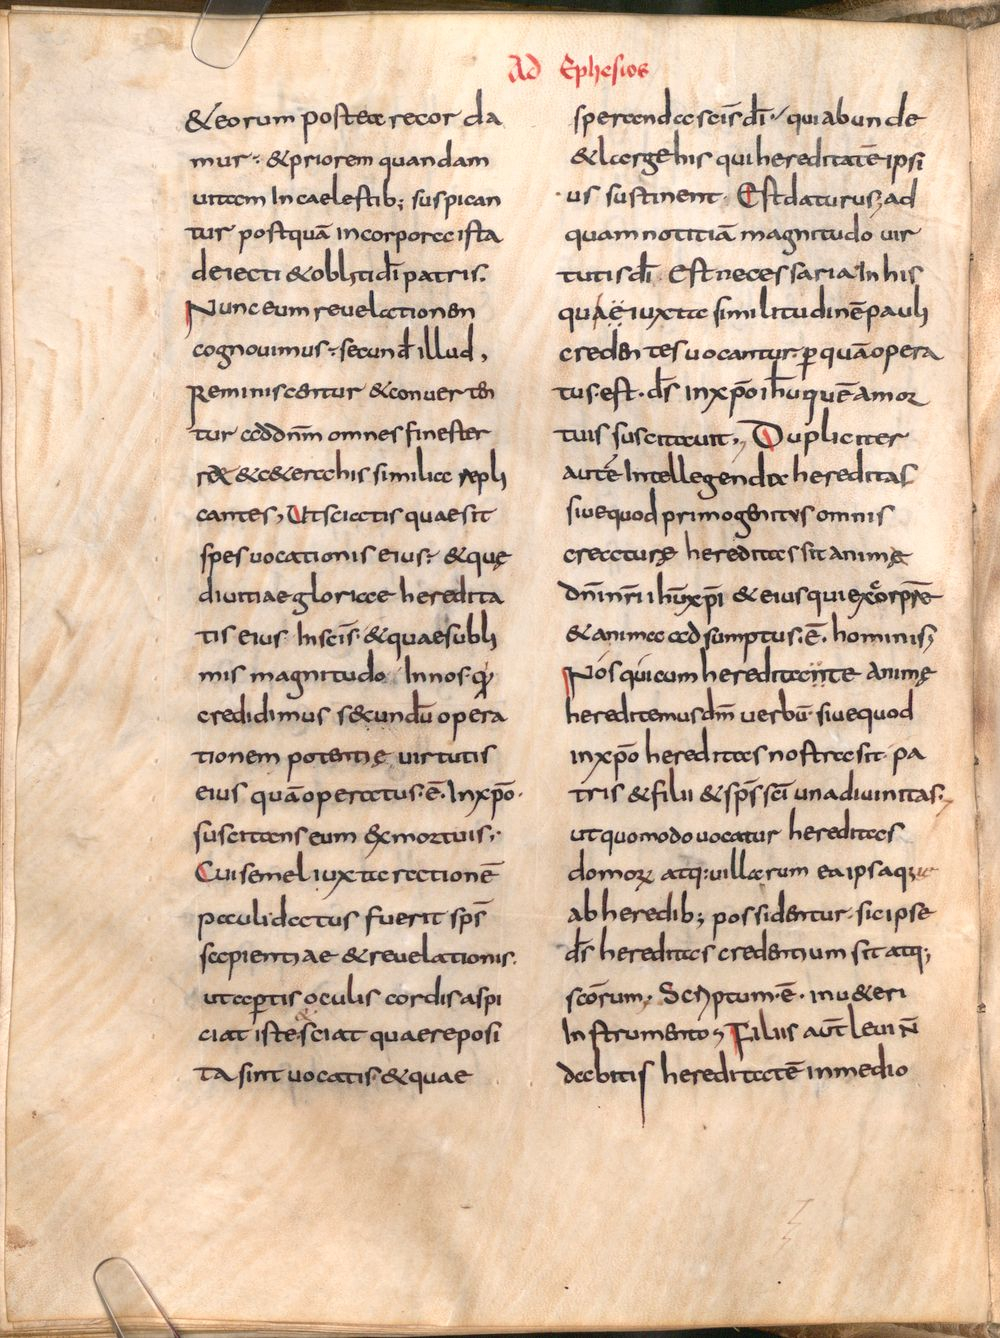 Ad Ephesios
& eorum postea recorda
mur· & priorem quandam
uitam In caelestib; suspican
tur postquā in corpora ista
deiecti & obliti dī patris.
Nunc eum reuelationen
cognouimus· secund̄ illud,
Reminiscentur & conuerten
tur ad dn̄m omnes fines ter
rae & c&era his similia repli
cantes, Ut sciatis quae sit
spes uocationis eius· & quę
diuitiae gloriae heredita
tis eius In sc̄is· & quae subli
mis magnitudo In nos· q̄
credidimus secundū opera
tionem potentię uirtutis
eius quā operatus· ē· In xp̄o·
suscitans eum ex mortuis;
Cui semel iuxta rationē
pauli datus fuerit sp̄s
sapientiae & reuelationis·
ut apertis oculis cordis aspi
ciat iste· sciat quae reposi
ta sint uocatis· & quae
speranda sc̄is dī· qui abunde
& large his qui hereditatē ipsi
us sustinent· Est daturus; ad
quam notitiā magnitudo uir
tutis dī· Est necessaria In his
quaę iuxta similitudinē pauli
credentes uocantur· ꝑ quā opera
tus· est· ds̄ in xp̄o ih̄u quē a mor
tuis suscitauit, Dupliciter
autē Intellegenda hereditas
siue quod primogenitus omnis
creaturę hereditas sit animę
dn̄i nr̄i ih̄u xp̄i & eius qui ex
& anima adsumptus· ē· hominis;
Nos qui cum hereditante animę
hereditemus dm̄ uerbū· siue quod
in xp̄o hereditas nostra sit· pa
tris & filii & sp̄s sc̄i una diuinitas·
ut quomodo uocatur hereditas
domorꝝ atq: uillarum ea ipsa quae
ab heredib; possidentur· sic ipse
ds̄ hereditas credentium sit atq;
sc̄orum· Scriptum· ē· in u&eri
Instrumento, Filiis aūt leui n̄
dabitis hereditatē in medio